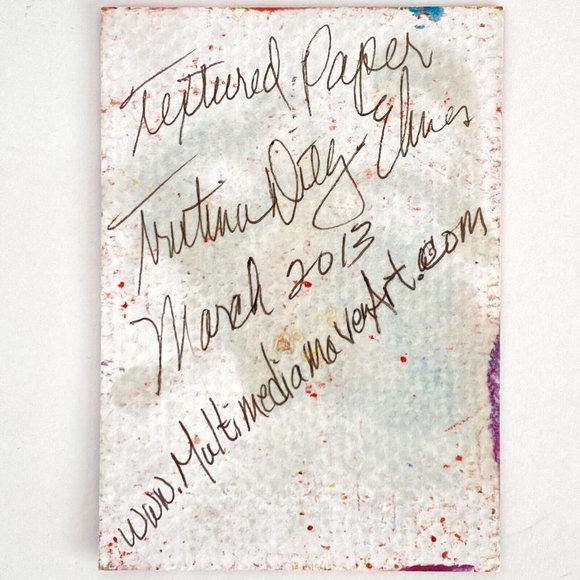 Textured Paper
Tristina Dietz-Elmes
March 2013
www.MultimediamavenArt.com